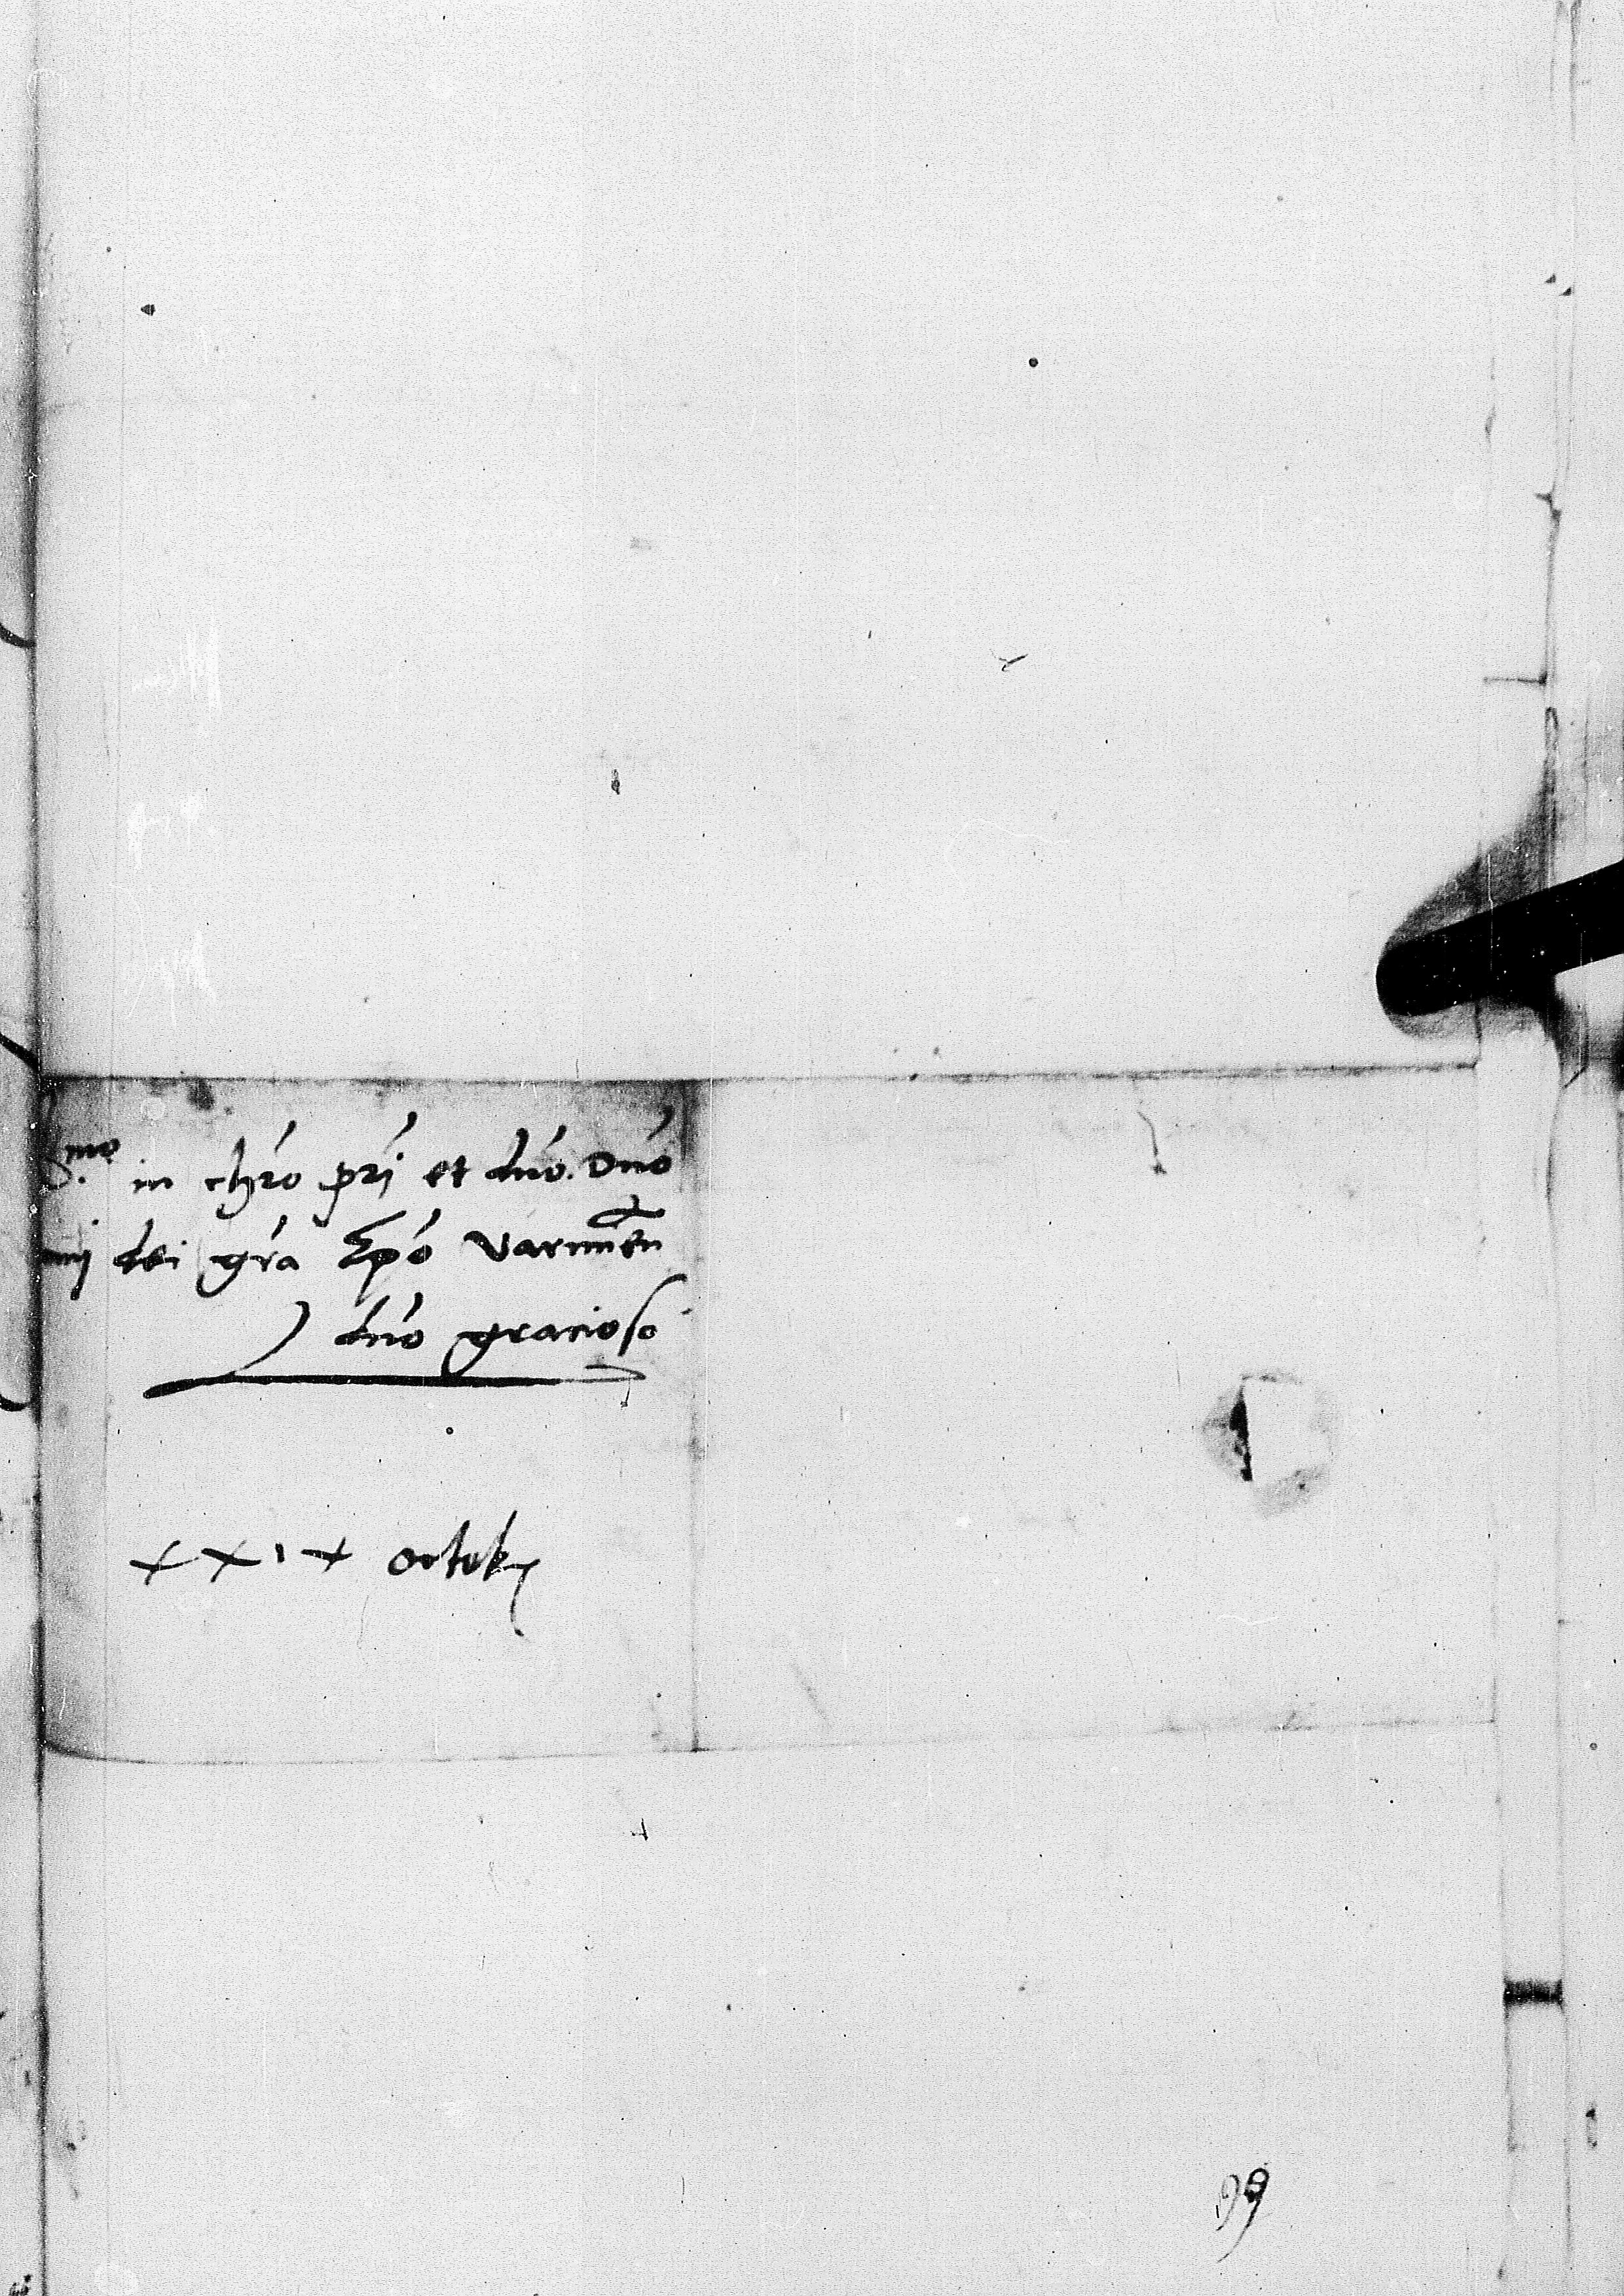 mo in chro pri et dno. Dno
dei gra Epo Varmien
) dno gracioso
xxix octob
99